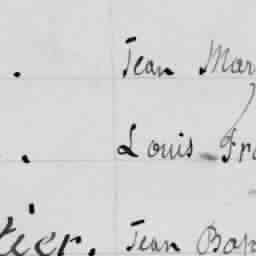 . Jean Mar
. Louis Fra
tier. Jean Bap